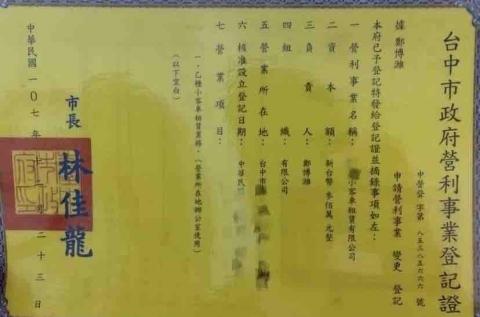 台中市政府營利事業登記證
中營登字第八五三八五六六六號
據 鄭博濰 申請營利事業 變更 登記
本府已予登記特發給登記證並摘錄事項如左：
一營利事業名稱：小客車租賃有限公司
二資本額：新台幣 參佰萬 元整
三負責人：鄭博濰
四組織：有限公司
五營業所在地：台中市
六核准設立登記日期：中華民國
七營業項目：
一、乙種小客車租賃業務。（營業所在地辦公室使用）
（以下空白）
市長 林佳龍
中華民國一0七年 二十三日